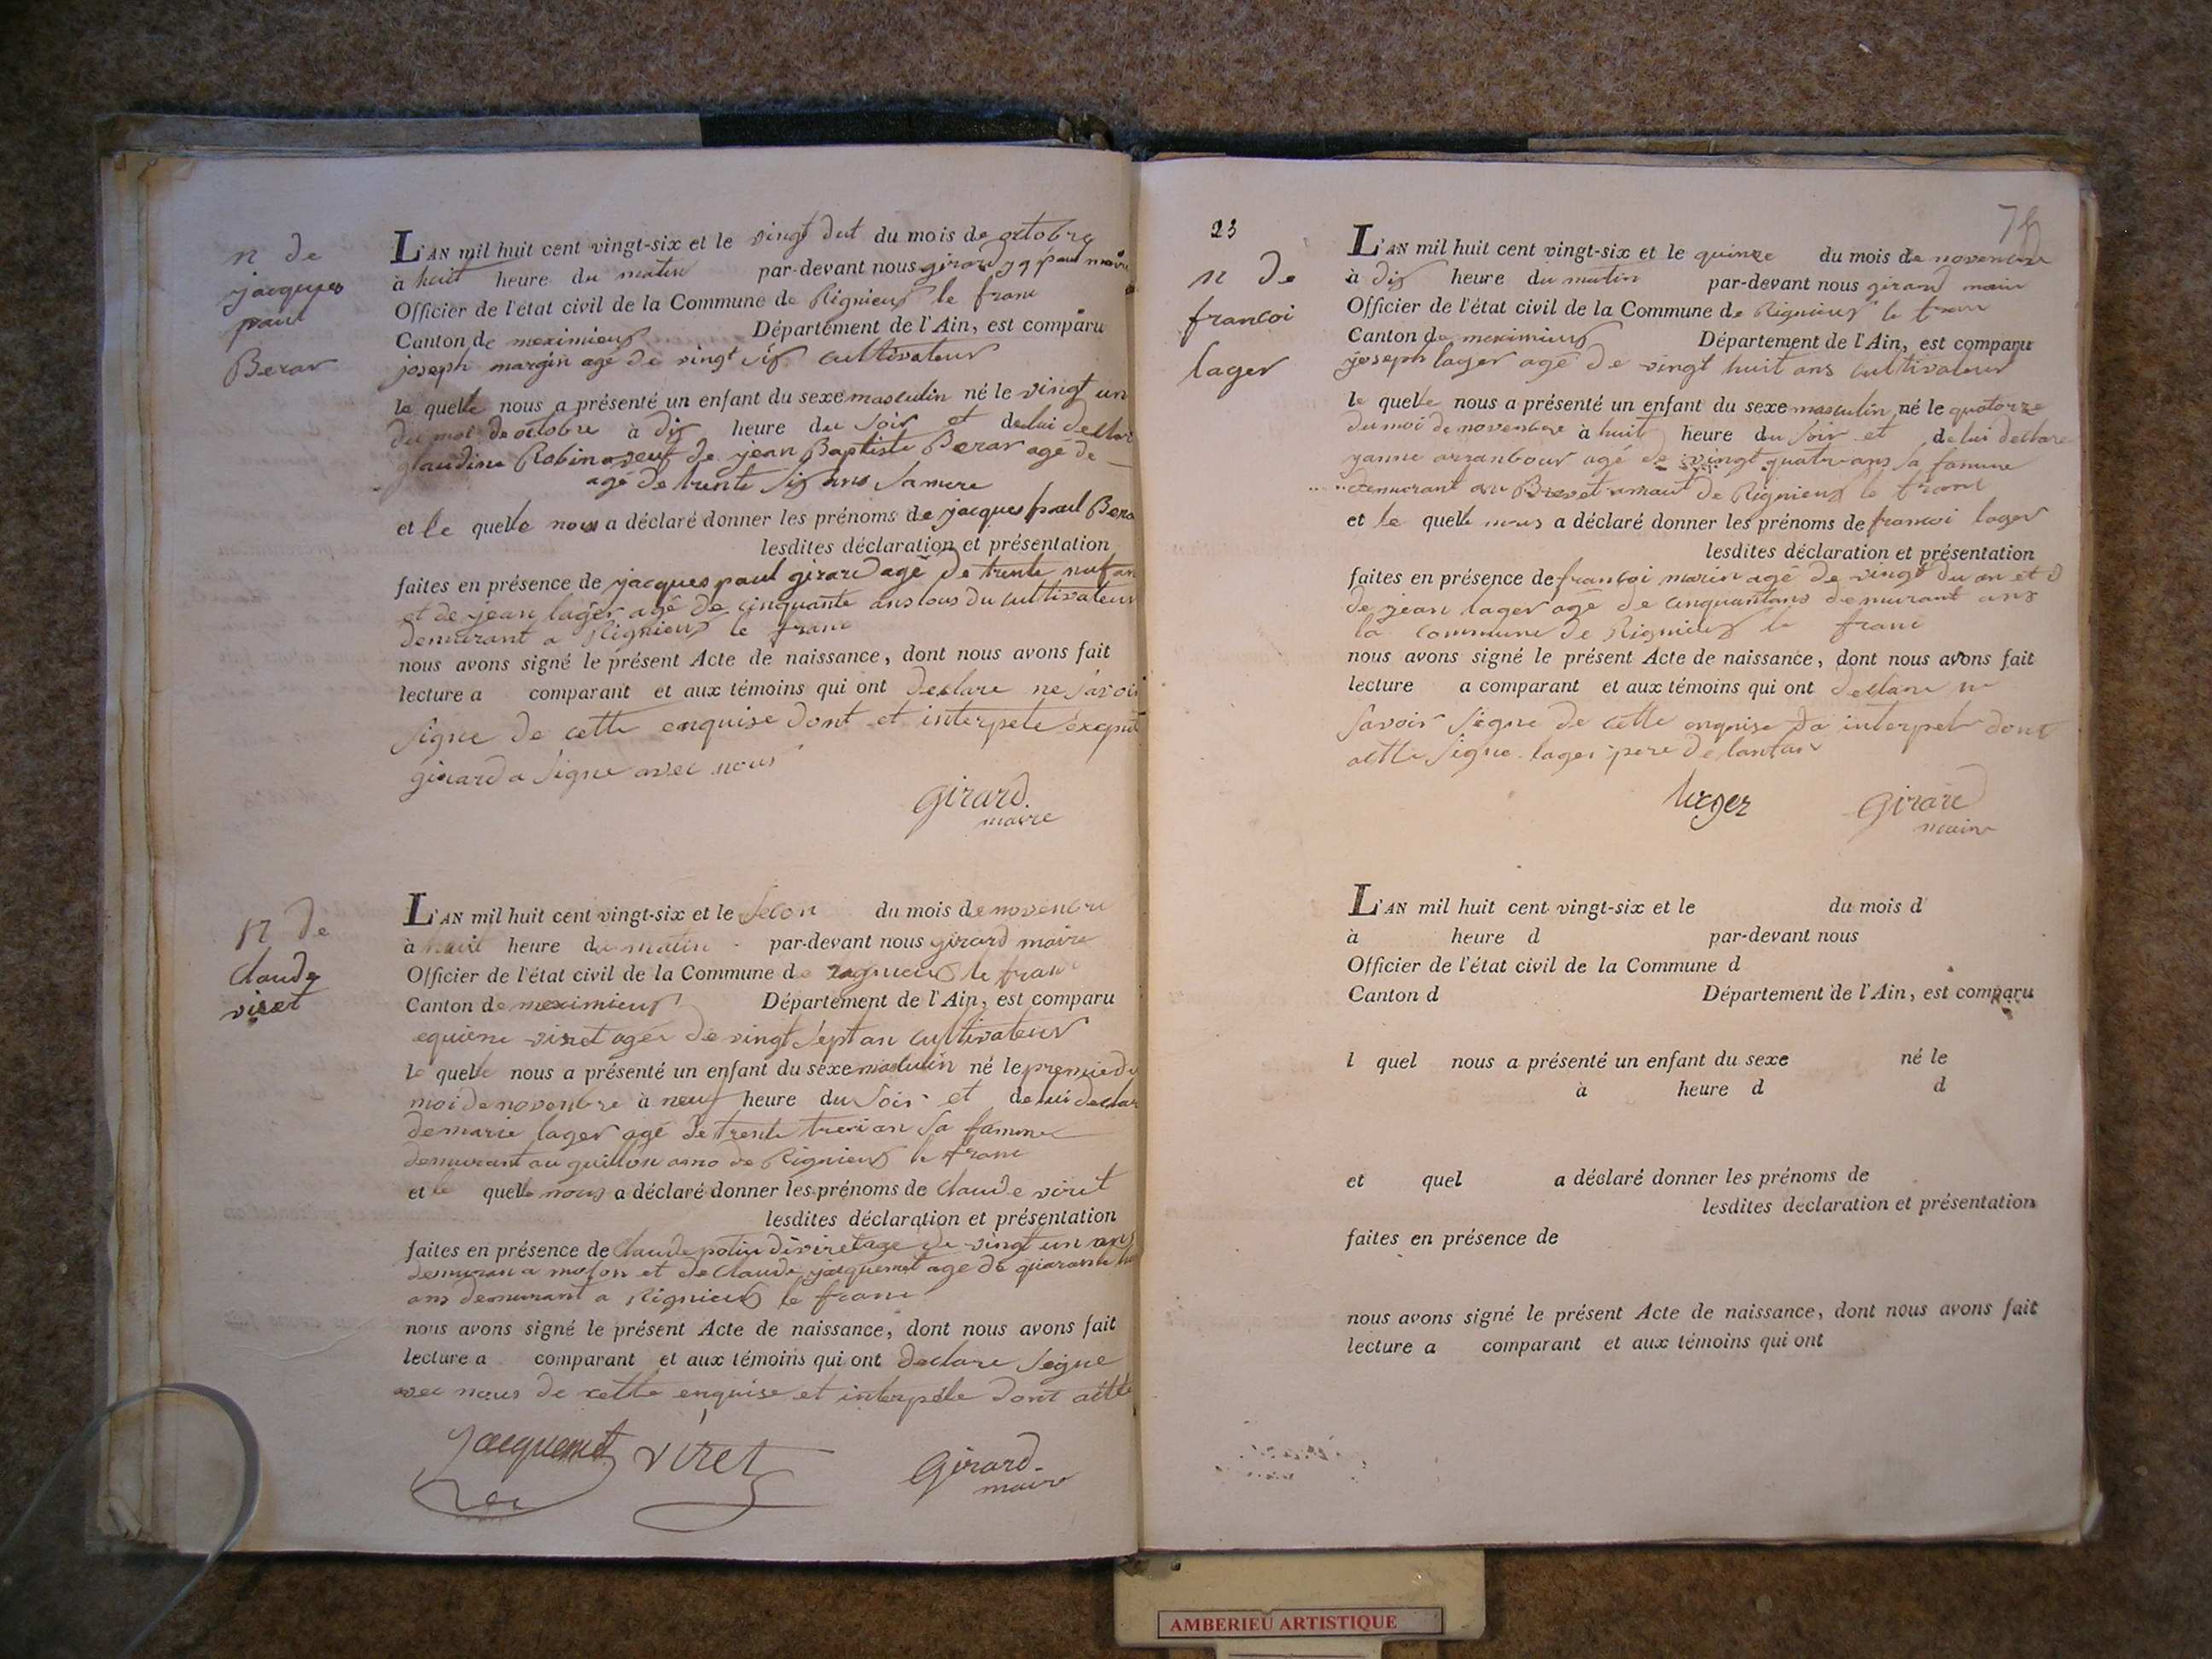 n de
jacques
paul
Berar
L'AN mil huit cent vingt-six et le vingt dut du mois de octobre
à huit heure du matin par-devant nous girard jq paul maire
Officier de l'état civil de la Commune de Rignieux le franc
Canton de meximieux Département de l'Ain, est comparu
joseph margin agé de vingt six cultivateur
le quelle nous a présenté un enfant du sexe masculin né le vingt un
du moi de octobre à dix heure du soir et de lui declar
glaudine Robin veuf de jean Baptiste Berar agé de
agé de trente six ans sa mere
et le quelle nous a déclaré donner les prénoms de jacques paul Bera
lesdites déclaration et présentation
faites en présence de jacques paul girard agé de trente nuf an
et de jean lager agé de cinquante ans tous du cultivateur
demurant a Rignieux le franc
nous avons signé le présent Acte de naissance, dont nous avons fait
lecture a comparant et aux témoins qui ont declare ne savoir
signe de cette enquise dont et interpele exepté
girard a signe avec nous
girard
maire
n de
Claude
viret
L'AN mil huit cent vingt-six et le secon du mois de novenbre
à huit heure du matin par-devant nous girard maire
Officier de l'état civil de la Commune de Rignieux le franc
Canton de meximieux Département de l'Ain, est comparu
viret agér de vingt sept an cultivateur
le quelle nous a présenté un enfant du sexe masculin né le premie du
moi de novenbre à neuf heure du soir et de lui declar
de marie lager agé de trente troi an sa famme
demurant au guillon amo de Rignieux le franc
et le quelle nous a déclaré donner les prénoms de Claude viret
lesdites déclaration et présentation
faites en présence de Claude agé de vingt un ans
demuran a molon et de Claude jacquemet age de quarante
ans demurant a Rignieux le franc
nous avons signé le présent Acte de naissance, dont nous avons fait
lecture a comparant et aux témoins qui ont declare signe
avec nous de cette enquise et interpéle dont atte
jacquemet viret girard
maire
23
n de
francoi
lager
L'AN mil huit cent vingt-six et le quinze du mois de novenbre
à dix heure du matin par-devant nous girard maire
Officier de l'état civil de la Commune de Rignieux le franc
Canton de meximieux Département de l'Ain, est comparu
joseph lager agé de vingt huit ans cultivateur
le quelle nous a présenté un enfant du sexe masculin né le quatorze
du moi de novenbre à huit heure du soir et de lui declare
yanne arranbour agé de vingt quatr ans sa famme
demurant au Brevet amaut de Rignieux le franc
et le quelle nous a déclaré donner les prénoms de francoi lager
lesdites déclaration et présentation
faites en présence de françoi marin agé de vingt du an et d
de jean lager agé de cinquantans demurant ans
la commune de Rignieux le franc
nous avons signé le présent Acte de naissance, dont nous avons fait
lecture a comparant et aux témoins qui ont declare ne
savoir signe de cette enquise da interpel dont
atte signe lager pere de lanfan
lager girard
maire
L'AN mil huit cent vingt-six et le du mois d
à heure d par-devant nous
Officier de l'état civil de la Commune d
Canton d Département de l'Ain, est comparu
l quel nous a présenté un enfant du sexe né le
à heure d d
et quel a déclaré donner les prénoms de
lesdites déclaration et présentation
faites en présence de
nous avons signé le présent Acte de naissance, dont nous avons fait
lecture a comparant et aux témoins qui ont
AMBERIEU ARTISTIQUE